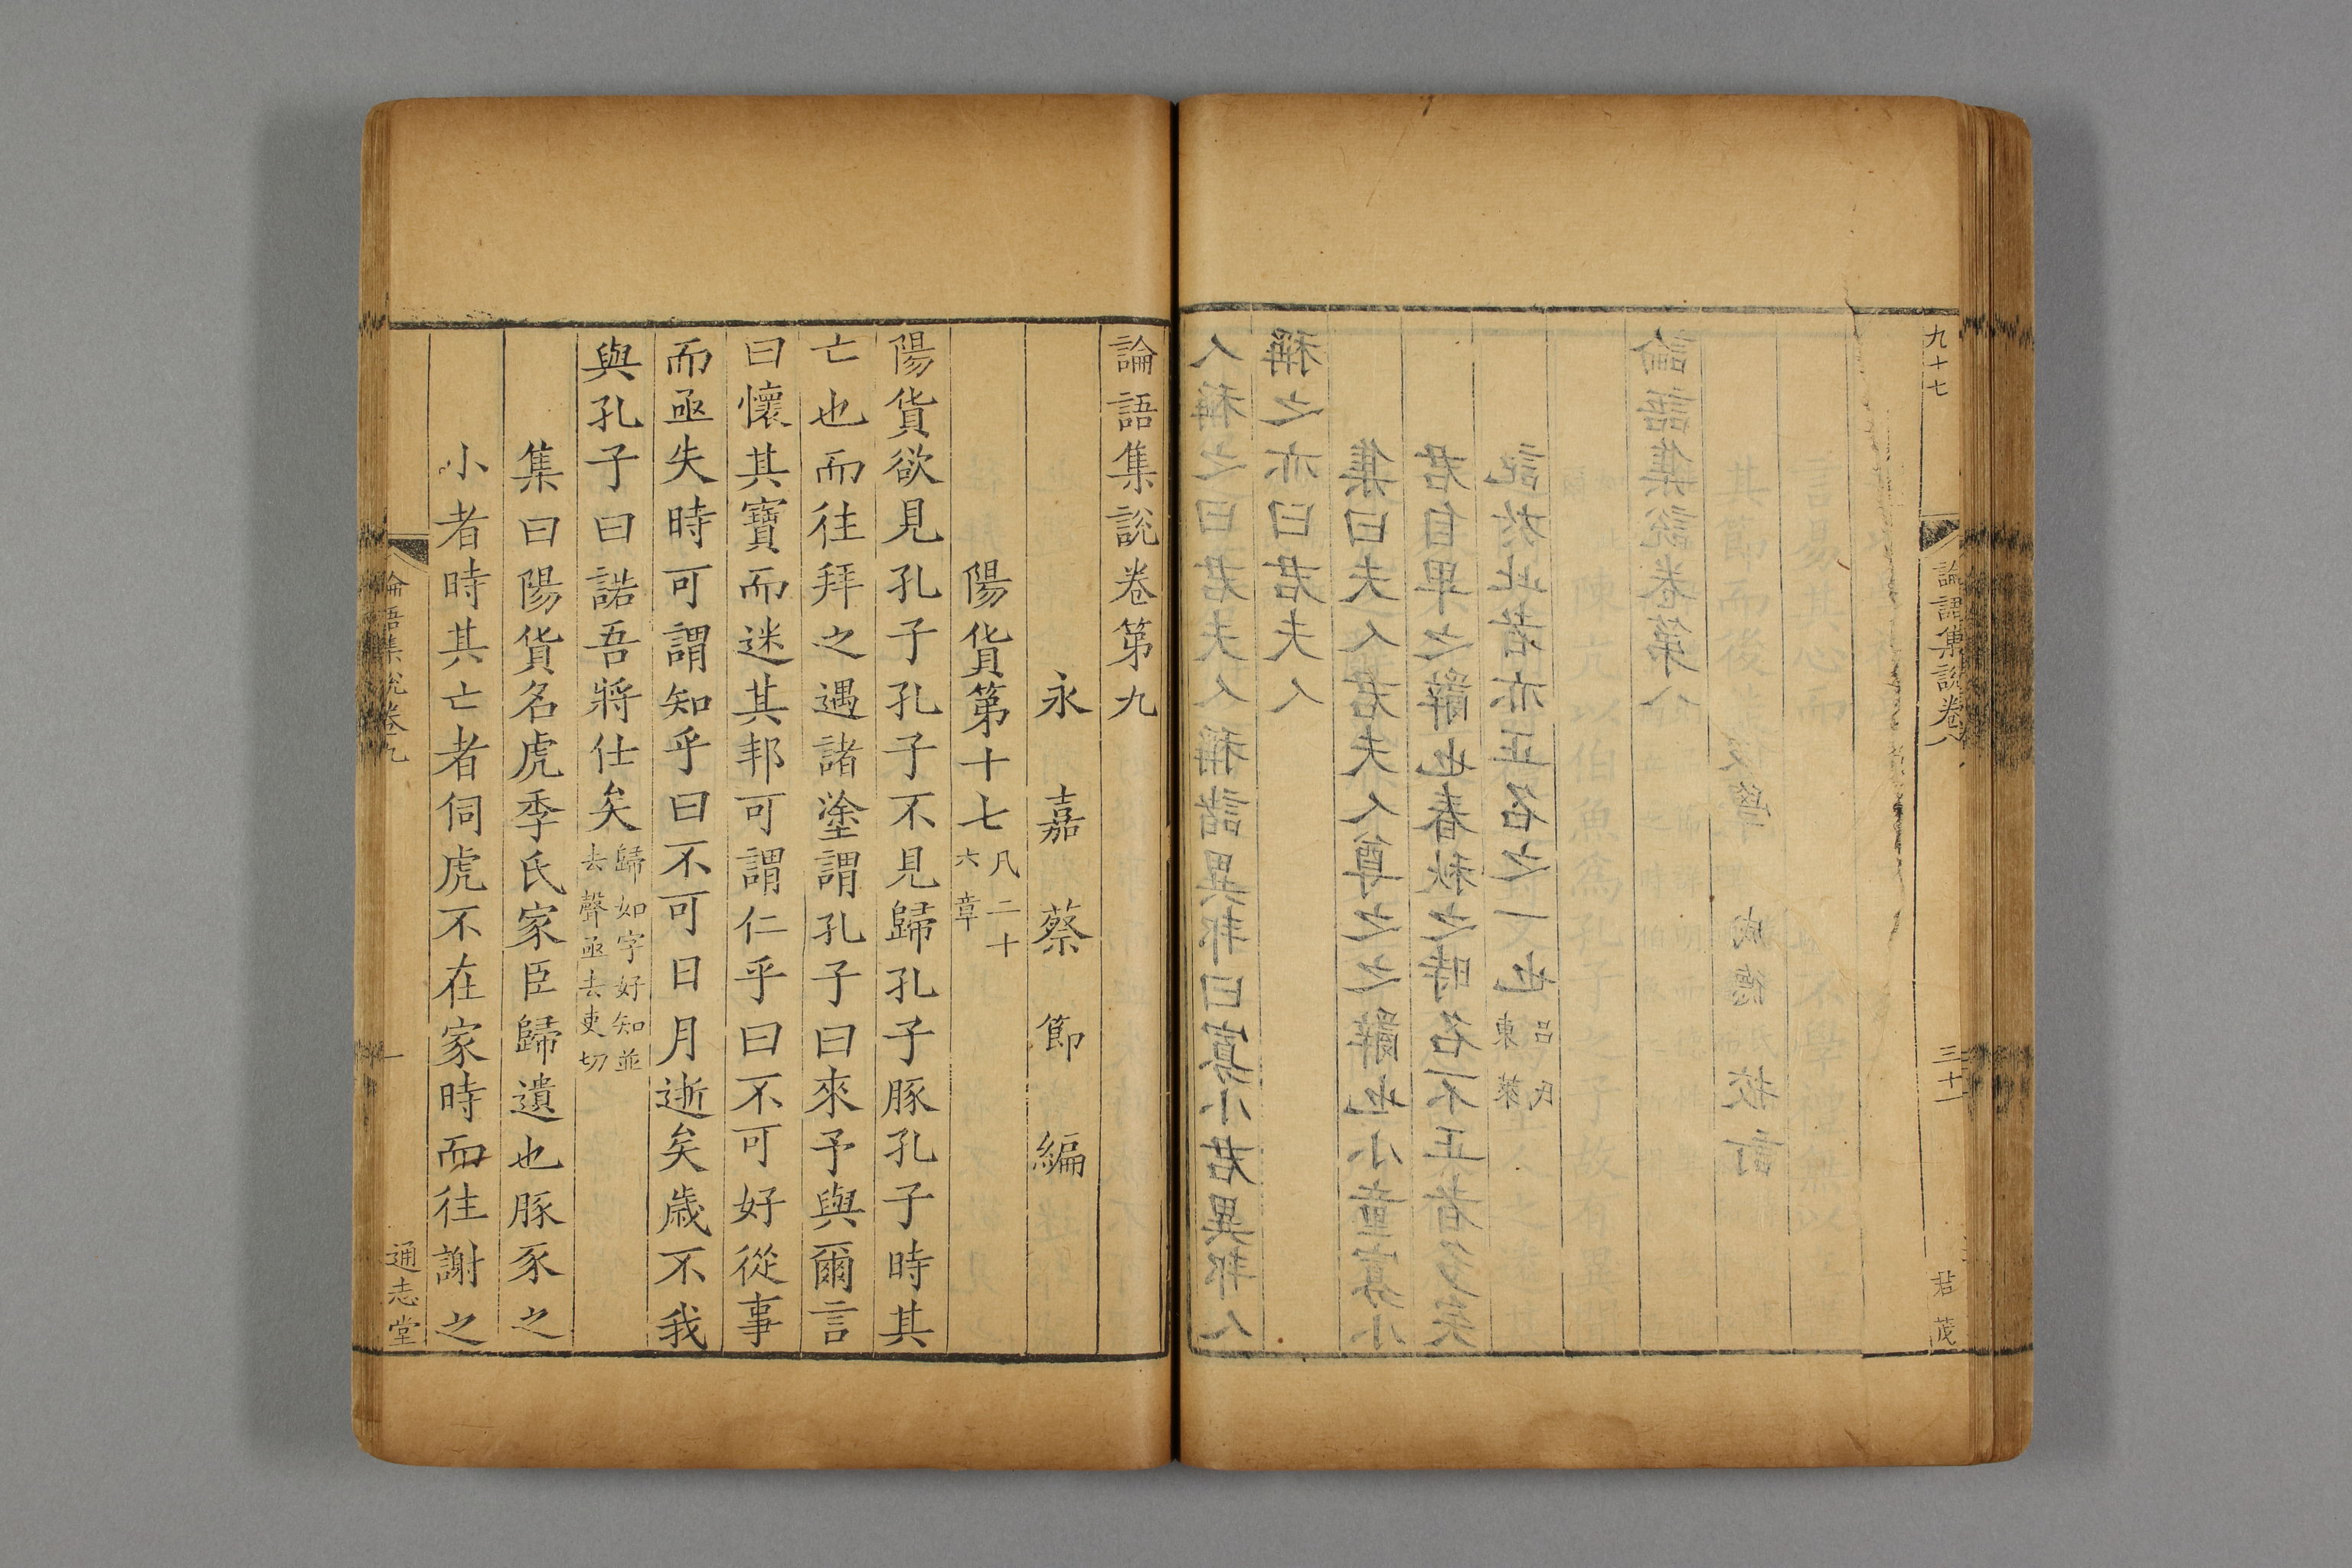 九十七
論語集說卷八
三十一
君茂
人稱之曰君夫人稱諸異邦曰寡小君異邦人
稱之亦曰君夫人
集曰夫人君夫人尊之之辭也小童寡小
君自卑之辭也春秋之時名不正者多矣
記於此者亦正名之一也東萊呂氏
論語集說卷第八
後學成德校訂
論語集說卷第九
永嘉蔡節編
陽貨第十七凡二十六章
陽貨欲見孔子孔子不見歸孔子豚孔子時其
亡也而往拜之遇諸塗謂孔子曰來予與爾言
曰懷其寶而迷其邦可謂仁乎曰不可好從事
而亟失時可謂知乎曰不可日月逝矣歲不我
與孔子曰諾吾將仕矣歸如字好知並去聲亟去吏切
集曰陽貨名虎季氏家臣歸遺也豚豕之
小者時其亡者伺虎不在家時而往謝之
論語集說卷九
一
通志堂